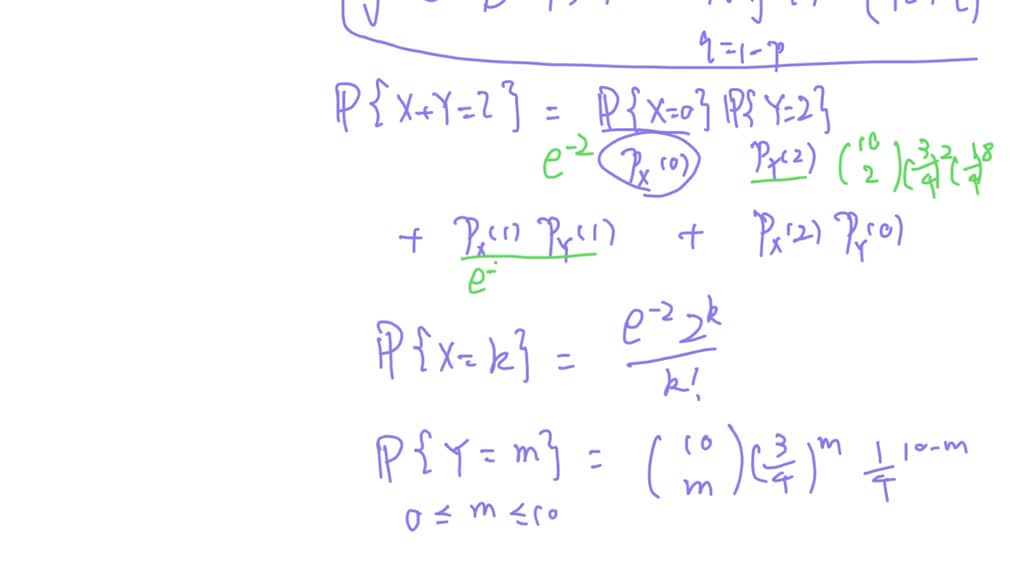 q=1-p
P{X+Y=2} = P{X=0} P{Y=2}
e^{-2} P_X(0) P_Y(2) (10 2) (3/4)^2 (1/4)^8
+ P_X(1) P_Y(1) + P_X(2) P_Y(0)
e^-
P{X=k} = e^{-2} 2^k / k!
P{Y=m} = (10 m) (3/4)^m 1/4^{10-m}
0 ≤ m ≤ 10